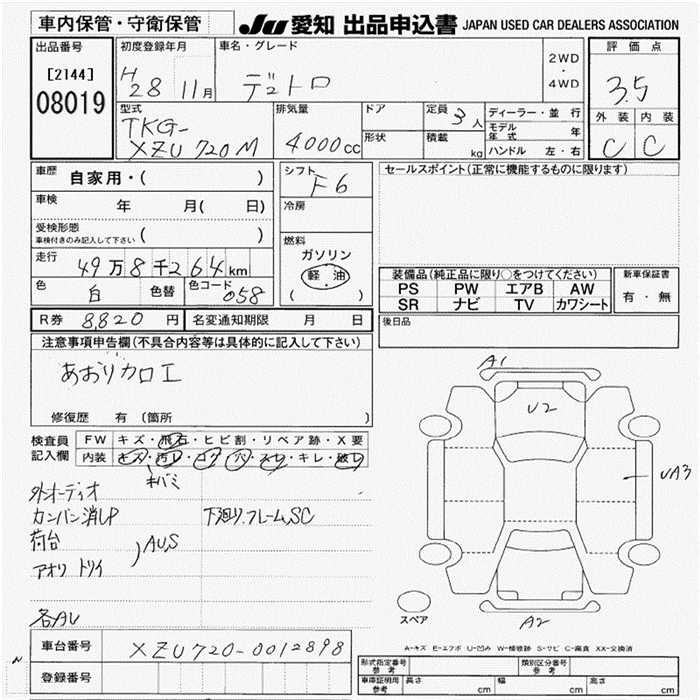 車内保管・守衛保管
JU 愛知 出品申込書 JAPAN USED CAR DEALERS ASSOCIATION
出品番号
[2144]
08019
初度登録年月
H28 11月
車名・グレード
デュトロ
2WD
・
4WD
評価点
3.5
外装 内装
C C
型式
TKG-
XZU720M
排気量
4000cc
ドア
形状
定員 3人
積載 kg
ディーラー・並行
モデル年式 年
ハンドル 左・右
車歴 自家用・( )
車検 年 月( 日)
受検形態
車検付きのみ記入して下さい ( )
走行 49万8千264km
色 白 色替 色コード 058
シフト F6
冷房
燃料
ガソリン
軽油
( )
セールスポイント(正常に機能するものに限ります)
装備品(純正品に限り○をつけてください)
PS PW エアB AW
SR ナビ TV カワシート
新車保証書
有・無
R券 8,820円 名変通知期限 月 日
後日品
注意事項申告欄(不具合内容等は具体的に記入して下さい)
あおりカロエ
修復歴 有(箇所 )
検査員記入欄
FW キズ・飛石・ヒビ割・リペア跡・X要
内装 キズ・汚レ・コゲ・穴・スレ・キレ・破レ
キバミ
外オーディオ
カンバン消し中 下廻り.フレームSC
荷台
アオリ トリイ )AUS
各AU
A1
U2
UA3
A2
スペア
A-キズ E-エクボ U-凹み W-補修跡 S-サビ C-腐食 XX-交換済
車台番号 XZU720-0012898
登録番号
形式指定番号参考 類別区分番号参考
車庫証明用参考 長さ cm 幅 cm 高さ cm